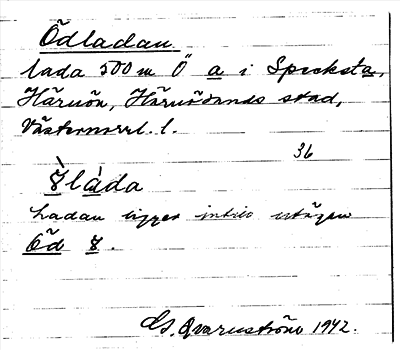 Ödladan
lada 500 m Ö a i Specksta,
Härnön, Härnösands stad,
Västernorrl. l.
36
8̀làda
Ladan ligger intill utägan
Öd 8.
G. Qvarnström 1942.